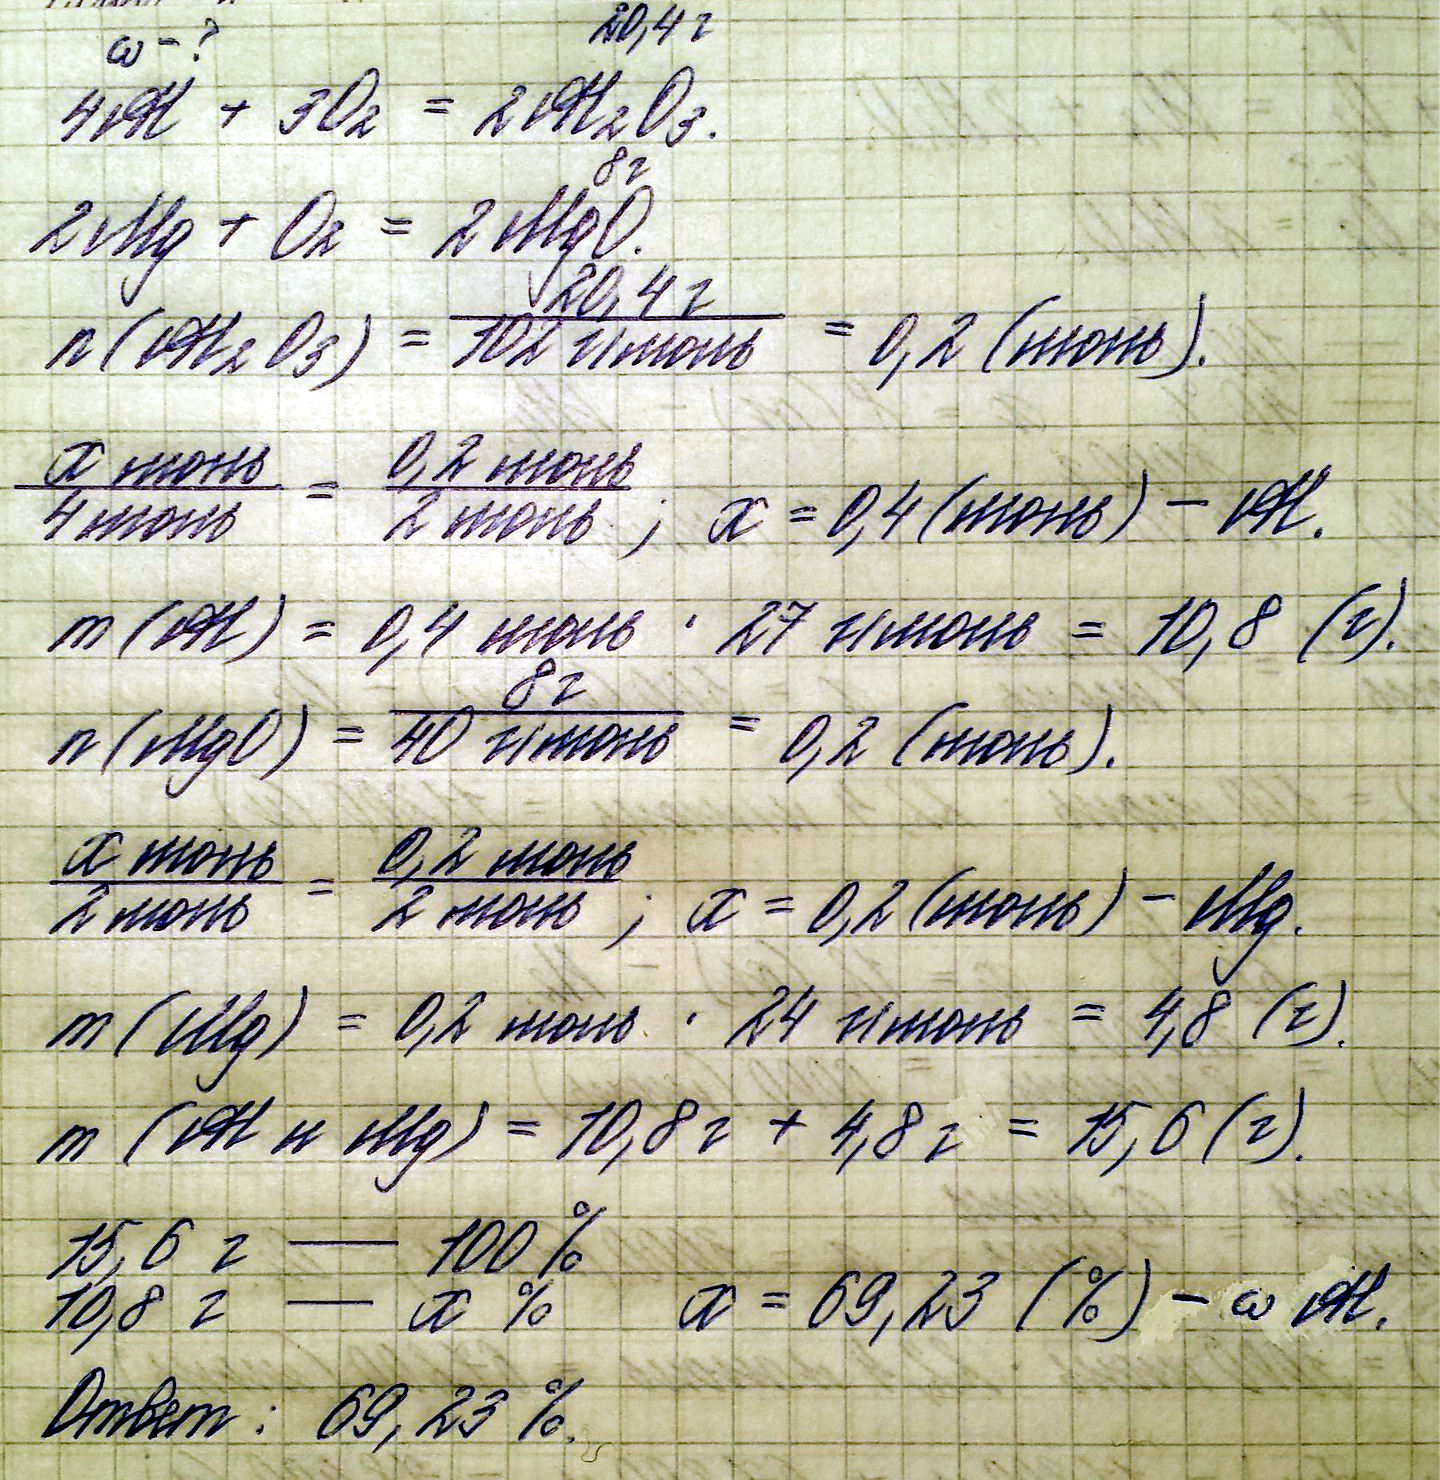 ω - ? 20,4 г
4Al + 3O₂ = 2Al₂O₃.
8 г
2Mg + O₂ = 2MgO.
n(Al₂O₃) = 20,4 г / 102 г/моль = 0,2 (моль).
x моль / 4 моль = 0,2 моль / 2 моль ; x = 0,4 (моль) - Al.
m(Al) = 0,4 моль · 27 г/моль = 10,8 (г).
n(MgO) = 8 г / 40 г/моль = 0,2 (моль).
x моль / 2 моль = 0,2 моль / 2 моль ; x = 0,2 (моль) - Mg.
m(Mg) = 0,2 моль · 24 г/моль = 4,8 (г).
m (Al и Mg) = 10,8 г + 4,8 г = 15,6 (г).
15,6 г — 100 %
10,8 г — x % x = 69,23 (%) - ω Al.
Ответ: 69,23 %.